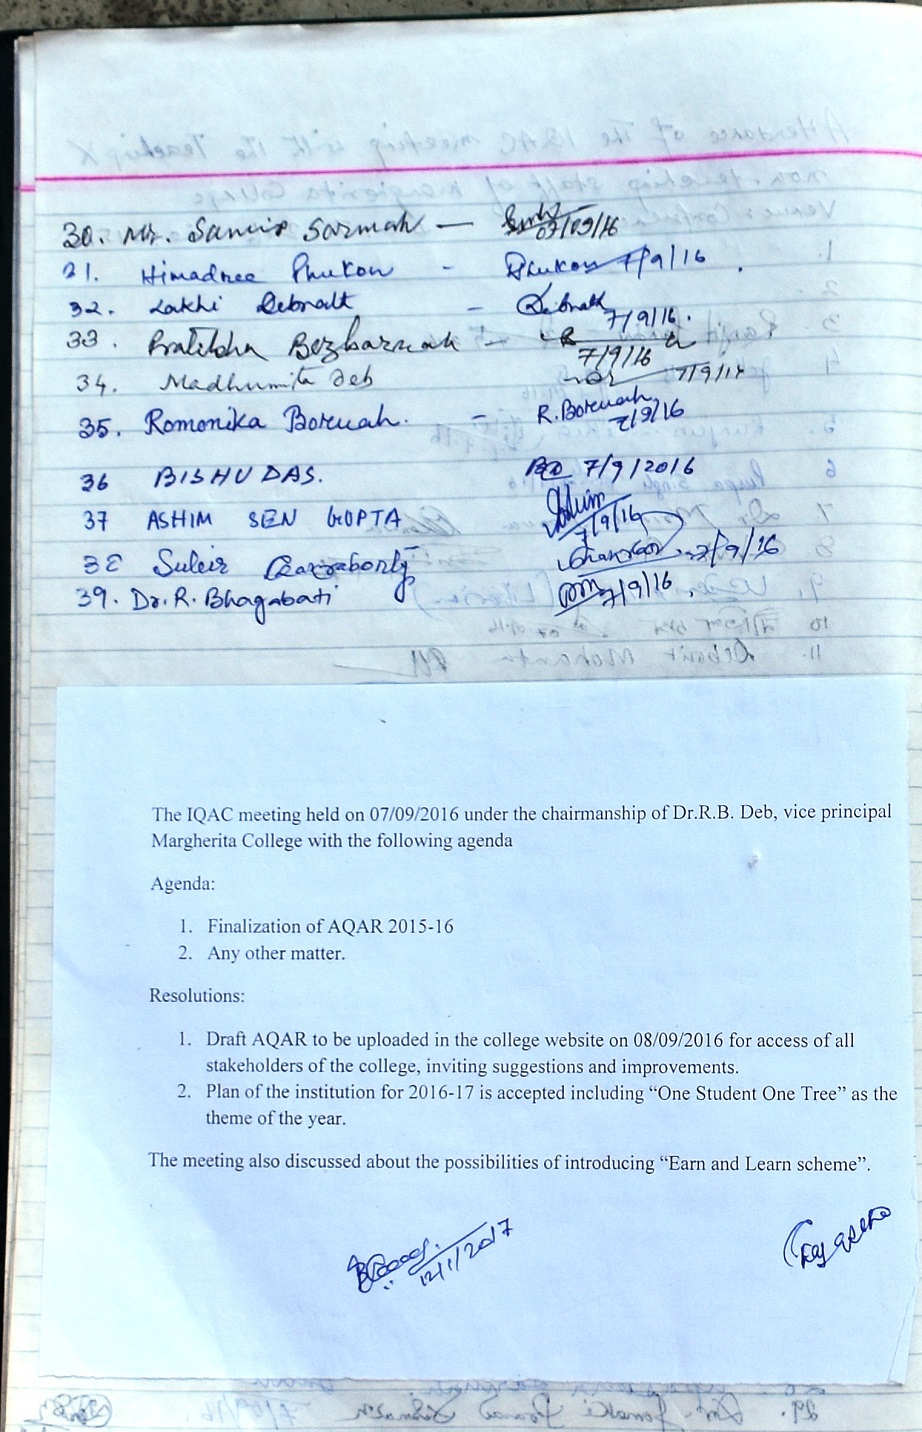 30. Mr. Samir Sarmah — 07/09/16
31. Himadree Phukon - Phukon 7/9/16
32. Lakhi Debnath - Debnath 7/9/16.
33. Pratibha Bezbaruah - 7/9/16
34. Madhumita Deb 7/9/16
35. Romonika Boruah. - R. Boruah 7/9/16
36 BISHU DAS. BD 7/9/2016
37 ASHIM SEN GUPTA Ashim 7/9/16
38 Subir Chakraborty 7/9/16
39. Dr. R. Bhagabati 7/9/16.
The IQAC meeting held on 07/09/2016 under the chairmanship of Dr.R.B. Deb, vice principal
Margherita College with the following agenda
Agenda:
1. Finalization of AQAR 2015-16
2. Any other matter.
Resolutions:
1. Draft AQAR to be uploaded in the college website on 08/09/2016 for access of all
stakeholders of the college, inviting suggestions and improvements.
2. Plan of the institution for 2016-17 is accepted including “One Student One Tree” as the
theme of the year.
The meeting also discussed about the possibilities of introducing “Earn and Learn scheme”.
12/1/2017